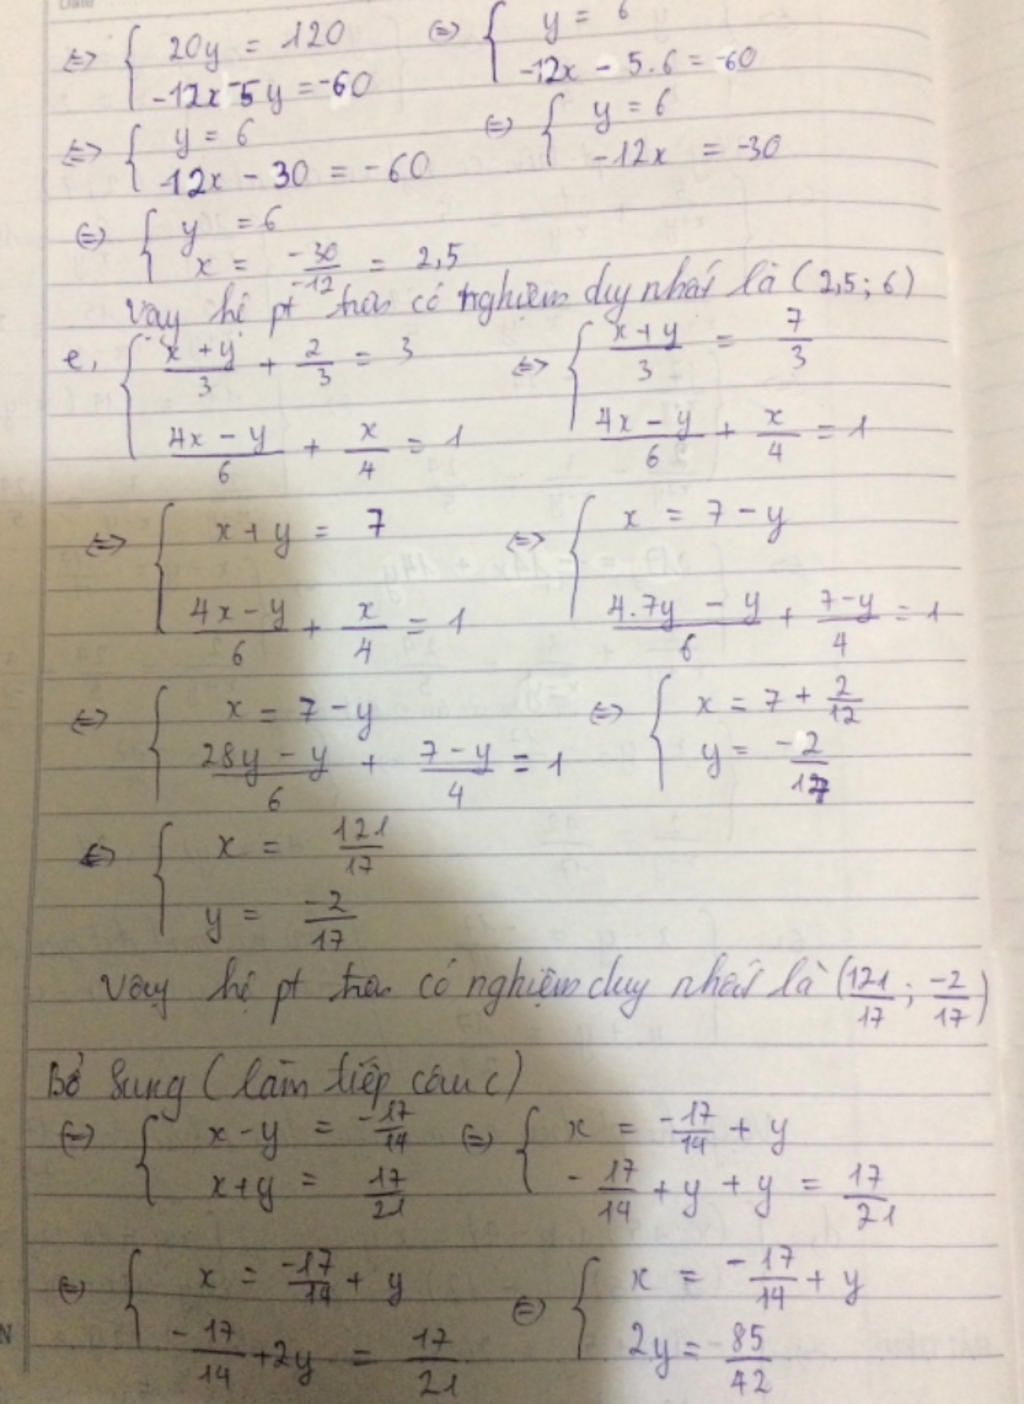 ⇔ { 20y = 120 ⇔ { y = 6
-12x - 5y = -60 -12x - 5.6 = -60
⇔ { y = 6 ⇔ { y = 6
-12x - 30 = -60 -12x = -30
⇔ { y = 6
x = -30/-12 = 2,5
Vậy hệ pt trên có nghiệm duy nhất là (2,5 ; 6)
e, { x+y/3 + 2/3 = 3 ⇔ { x+y/3 = 7/3
4x-y/6 + x/4 = 1 4x-y/6 + x/4 = 1
⇔ { x+y = 7 ⇔ { x = 7-y
4x-y/6 + x/4 = 1 4.7y - y/6 + 7-y/4 = 1
⇔ { x = 7-y ⇔ { x = 7 + 2/12
28y-y/6 + 7-y/4 = 1 y = -2/17
⇔ { x = 121/17
y = -2/17
Vậy hệ pt trên có nghiệm duy nhất là (121/17 ; -2/17)
Bổ sung (làm tiếp câu c)
⇔ { x-y = -17/14 ⇔ { x = -17/14 + y
x+y = 17/21 -17/14 + y + y = 17/21
⇔ { x = -17/14 + y ⇔ { x = -17/14 + y
-17/14 + 2y = 17/21 2y = 85/42
N